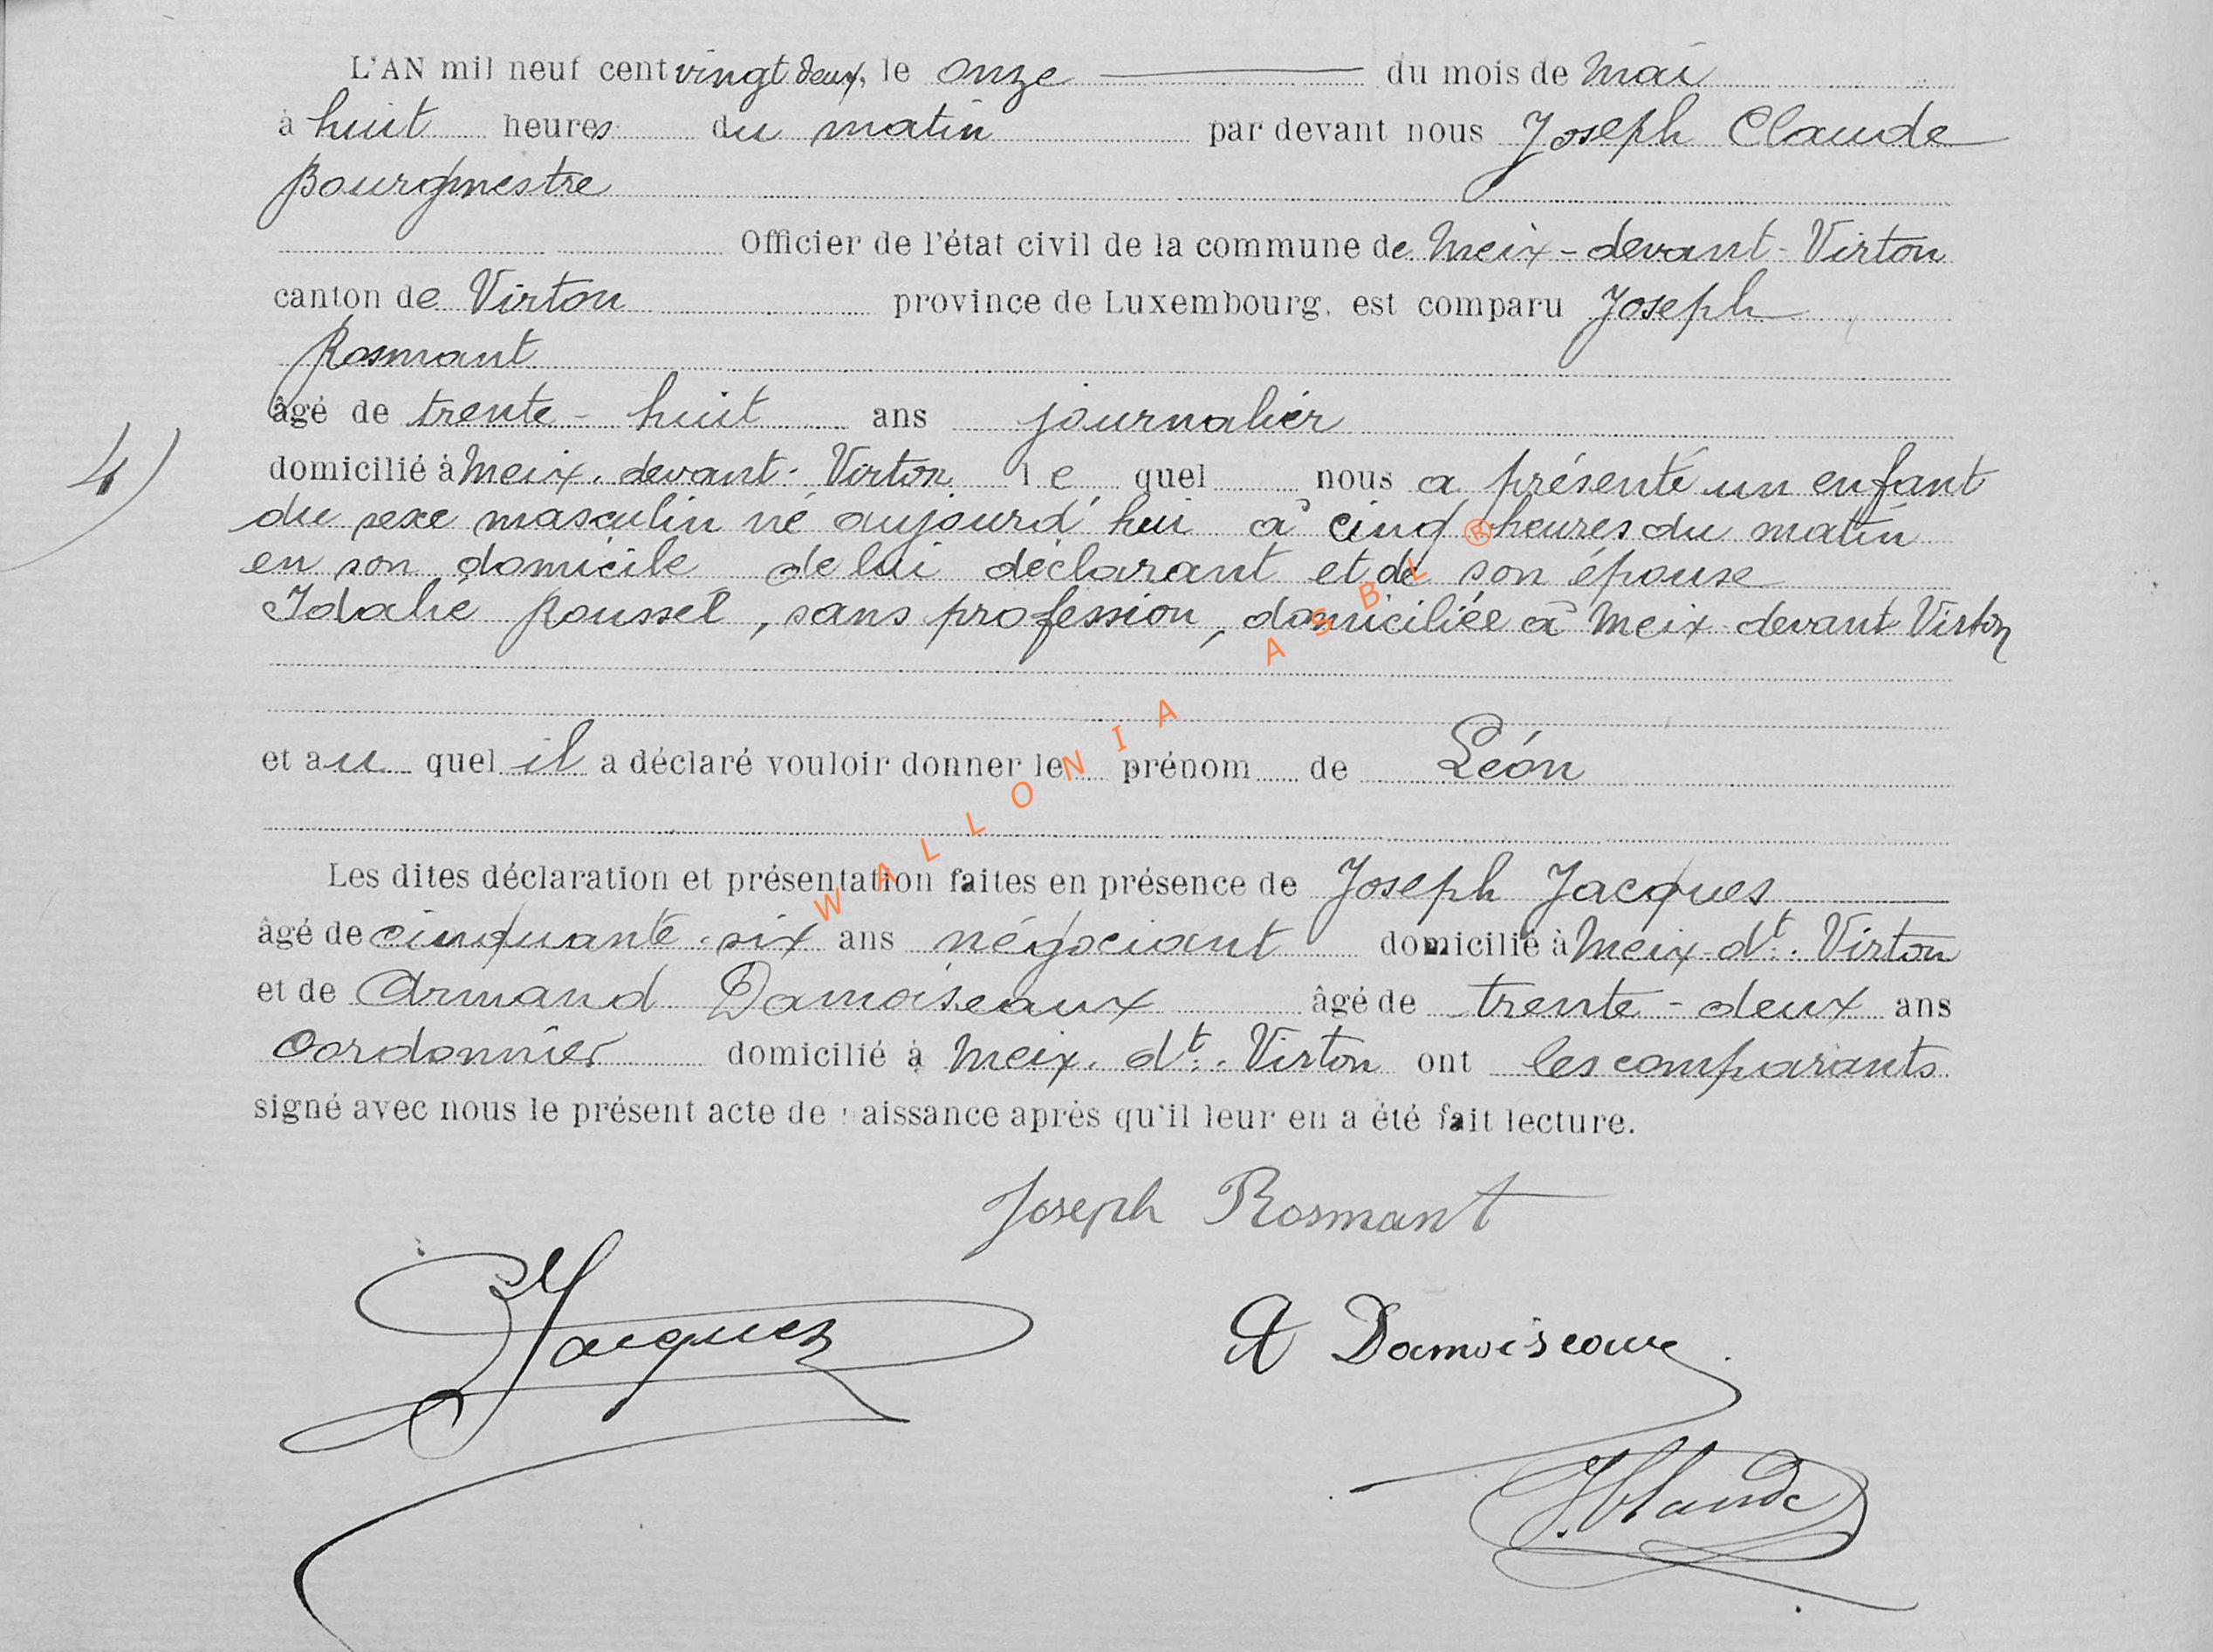 L'AN mil neuf cent vingt deux, le onze du mois de Mai
à huit heures du matin par devant nous Joseph Claude
Bourgmestre
Officier de l'état civil de la commune de Meix-devant-Virton
canton de Virton province de Luxembourg, est comparu Joseph
Rosmant
âgé de trente-huit ans journalier
4)
domicilié à Meix-devant-Virton le quel nous a présenté un enfant
du sexe masculin né aujourd'hui à cinq heures du matin
en son domicile de lui déclarant et de son épouse
Idalie Roussel, sans profession, domiciliée à Meix-devant-Virton
et au quel il a déclaré vouloir donner le prénom de Léon
Les dites déclaration et présentation faites en présence de Joseph Jacques
âgé de cinquante-six ans négociant domicilié à Meix-dt-Virton
et de Armand Damoiseaux âgé de trente-deux ans
cordonnier domicilié à Meix-dt-Virton ont les comparants
signé avec nous le présent acte de naissance après qu'il leur en a été fait lecture.
Joseph Rosmant
J Jacques
A Damoiseaux
J. Claude
WALLONIA ASBL ®